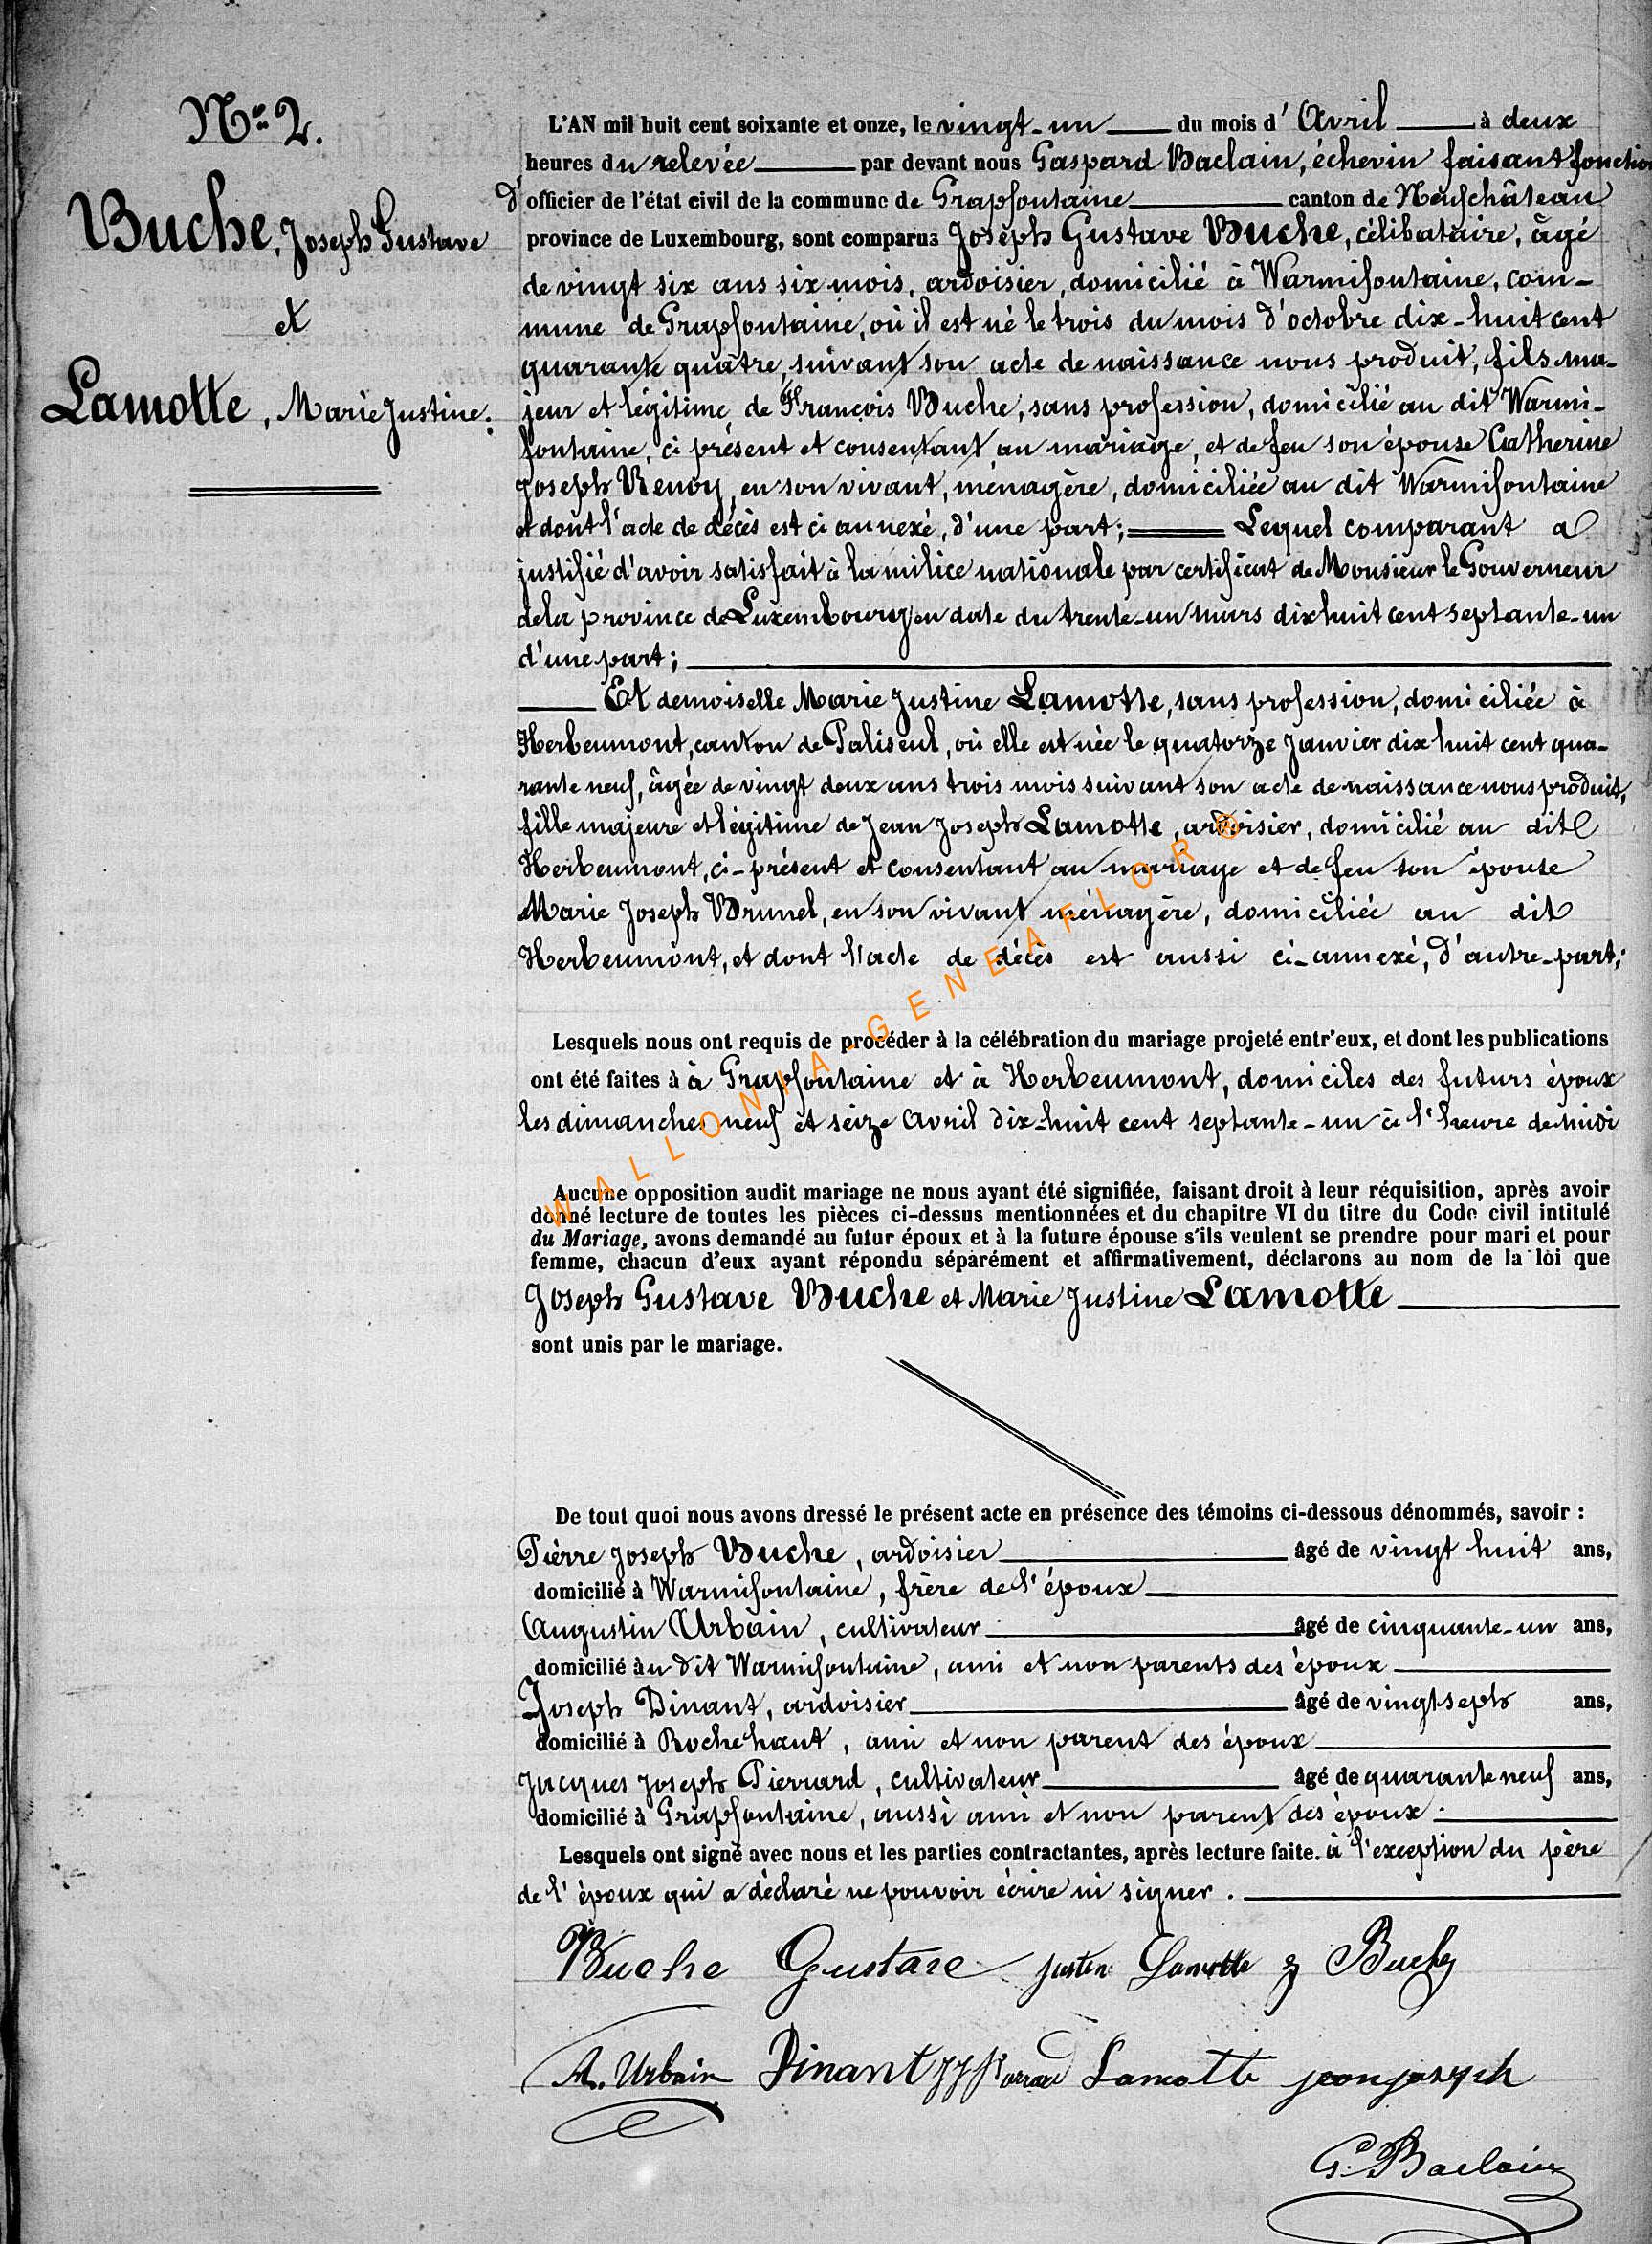 N° 2.
Buche, Joseph Gustave
et
Lamotte, Marie Justine.
L'AN mil huit cent soixante et onze, le vingt-un du mois d'Avril à deux
heures du relevée par devant nous Gaspard Baclain, échevin faisant fonction
d'officier de l'état civil de la commune de Grapfontaine canton de Neufchâteau
province de Luxembourg, sont comparus Joseph Gustave Buche, célibataire, âgé
de vingt six ans six mois, ardoisier, domicilié à Warmifontaine, com-
mune de Grapfontaine, où il est né le trois du mois d'octobre dix-huit cent
quarante quatre, suivant son acte de naissance nous produit, fils ma-
jeur et légitime de François Buche, sans profession, domicilié au dit Warmi-
fontaine, ci présent et consentant au mariage, et de feu son épouse Catherine
Joseph Renoy, en son vivant, ménagère, domiciliée au dit Warmifontaine
et dont l'acte de décès est ci annexé, d'une part; Lequel comparant a
justifié d'avoir satisfait à la milice nationale par certificat de Monsieur le Gouverneur
de la province de Luxembourg en date du trente-un mars dix huit cent septante-un
d'une part;
Et demoiselle Marie Justine Lamotte, sans profession, domiciliée à
Herbeumont, canton de Paliseul, où elle est née le quatorze Janvier dix huit cent qua-
rante neuf, âgée de vingt deux ans trois mois suivant son acte de naissance nous produit,
fille majeure et légitime de Jean Joseph Lamotte, ardoisier, domicilié au dit
Herbeumont, ci-présent et consentant au mariage et de feu son épouse
Marie Joseph Brunel, en son vivant ménagère, domiciliée au dit
Herbeumont, et dont l'acte de décès est aussi ci-annexé, d'autre-part;
Lesquels nous ont requis de procéder à la célébration du mariage projeté entr'eux, et dont les publications
ont été faites à à Grapfontaine et à Herbeumont, domiciles des futurs époux
les dimanches neuf et seize Avril dix-huit cent septante-un à l'heure de midi
Aucune opposition audit mariage ne nous ayant été signifiée, faisant droit à leur réquisition, après avoir
donné lecture de toutes les pièces ci-dessus mentionnées et du chapitre VI du titre du Code civil intitulé
du Mariage, avons demandé au futur époux et à la future épouse s'ils veulent se prendre pour mari et pour
femme, chacun d'eux ayant répondu séparément et affirmativement, déclarons au nom de la loi que
Joseph Gustave Buche et Marie Justine Lamotte
sont unis par le mariage.
De tout quoi nous avons dressé le présent acte en présence des témoins ci-dessous dénommés, savoir :
Pierre Joseph Buche, ardoisier âgé de vingt huit ans,
domicilié à Warmifontaine, frère de l'époux
Augustin Urbain, cultivateur âgé de cinquante-un ans,
domicilié au dit Warmifontaine, ami et non parents des époux
Joseph Dinant, ardoisier âgé de vingt sept ans,
domicilié à Rochehaut, ami et non parent des époux
Jacques Joseph Pierrard, cultivateur âgé de quarante neuf ans,
domicilié à Grapfontaine, aussi ami et non parent des époux.
Lesquels ont signé avec nous et les parties contractantes, après lecture faite. à l'exception du père
de l'époux qui a déclaré ne pouvoir écrire ni signer.
Buche Gustave Justin Lamotte Buche
A. Urbain Dinant JJ Pierrard Lamotte jean joseph
G. Baclain
WALLONIA-GENEAFLOR®